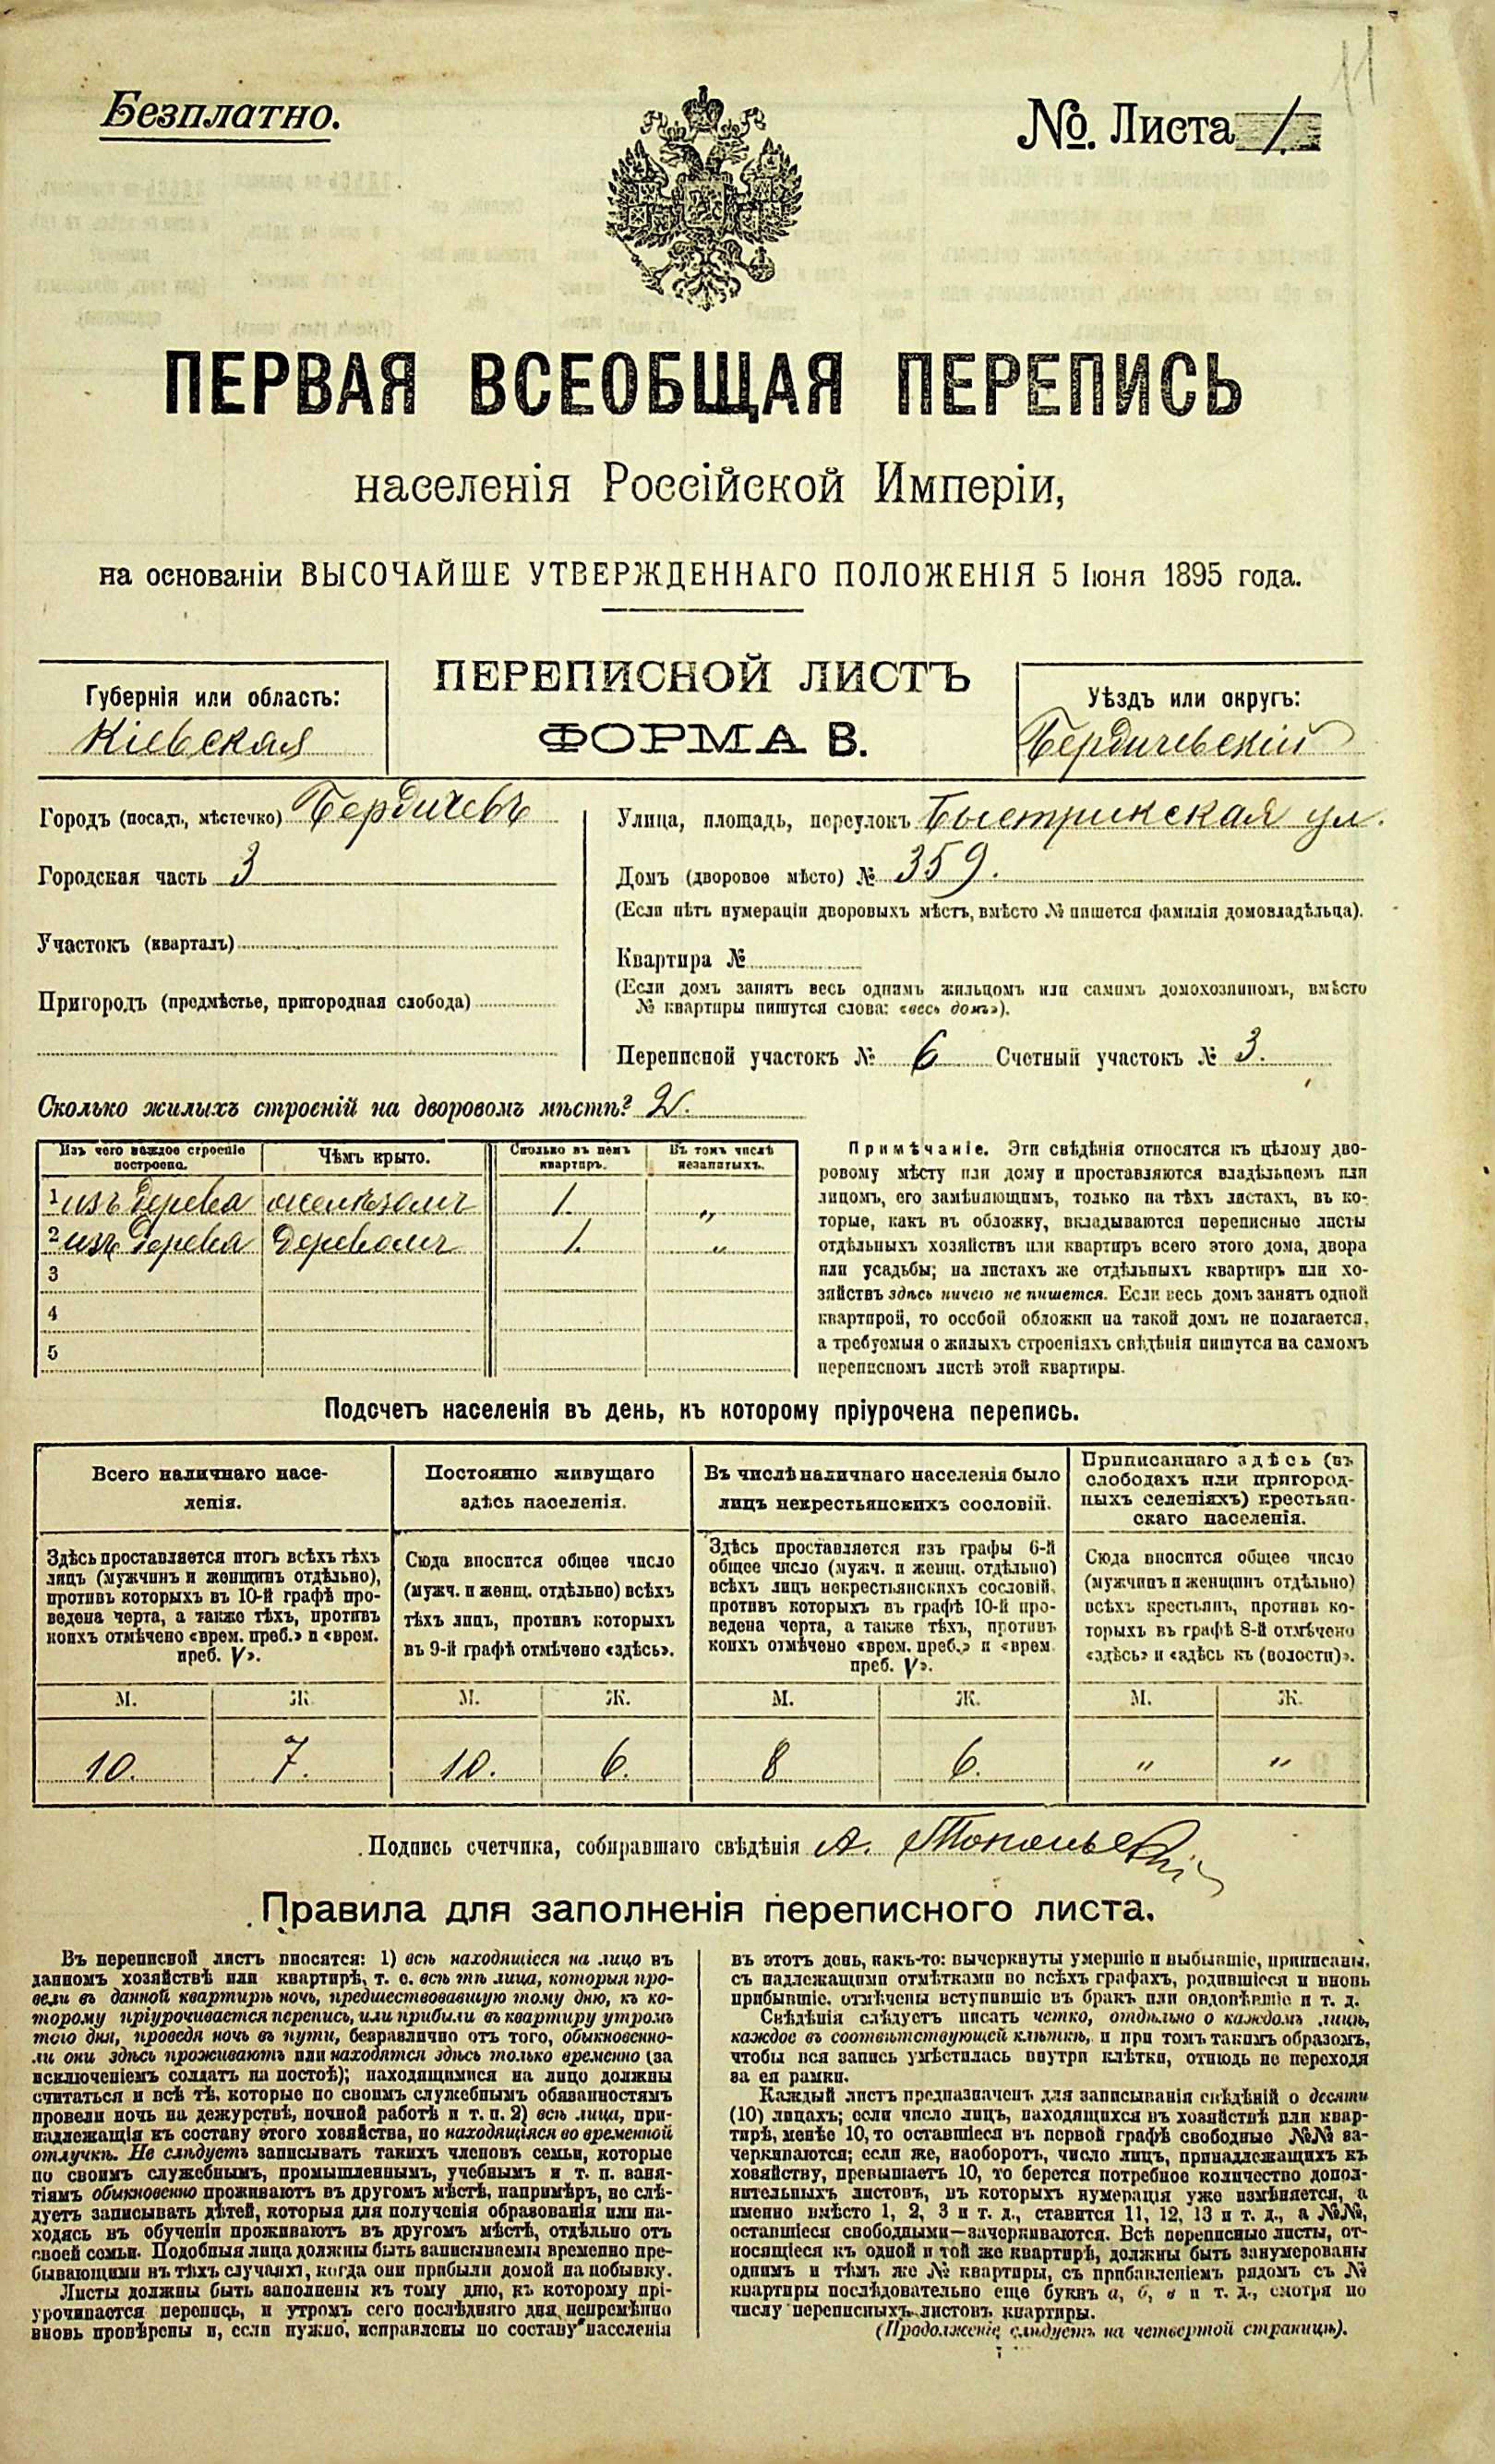 11
Безплатно.
№. Листа 1.
ПЕРВАЯ ВСЕОБЩАЯ ПЕРЕПИСЬ
населенія Россійской Имперіи,
на основаніи ВЫСОЧАЙШЕ УТВЕРЖДЕННАГО ПОЛОЖЕНІЯ 5 Іюня 1895 года.
Губернія или область:
Кіевская
ПЕРЕПИСНОЙ ЛИСТЪ
ФОРМА В.
Уѣздъ или округъ:
Бердичевскій
Городъ (посадъ, мѣстечко) Бердичевъ
Городская часть 3
Участокъ (кварталъ)
Пригородъ (предмѣстье, пригородная слобода)
Улица, площадь, переулокъ Быстрикская ул.
Домъ (дворовое мѣсто) № 359.
(Если нѣтъ нумераціи дворовыхъ мѣстъ, вмѣсто № пишется фамилія домовладѣльца).
Квартира №
(Если домъ занятъ весь однимъ жильцомъ или самимъ домохозяиномъ, вмѣсто
№ квартиры пишутся слова: «весь домъ»).
Переписной участокъ № 6 Счетный участокъ № 3.
Сколько жилыхъ строеній на дворовомъ мѣстѣ? 2.
Изъ чего каждое строеніе
построено.
Чѣмъ крыто.
Сколько въ немъ
квартиръ.
Въ томъ числѣ
незанятыхъ.
1 изъ дерева желѣзомъ 1. "
2 изъ дерева деревомъ 1. "
3
4
5
Примѣчаніе. Эти свѣдѣнія относятся къ цѣлому дво-
ровому мѣсту или дому и проставляются владѣльцемъ или
лицомъ, его замѣняющимъ, только на тѣхъ листахъ, въ ко-
торые, какъ въ обложку, вкладываются переписные листы
отдѣльныхъ хозяйствъ или квартиръ всего этого дома, двора
или усадьбы; на листахъ же отдѣльныхъ квартиръ или хо-
зяйствъ здѣсь ничего не пишется. Если весь домъ занятъ одной
квартирой, то особой обложки на такой домъ не полагается,
а требуемыя о жилыхъ строеніяхъ свѣдѣнія пишутся на самомъ
переписномъ листѣ этой квартиры.
Подсчетъ населенія въ день, къ которому пріурочена перепись.
Всего наличнаго насе-
ленія.
Здѣсь проставляется итогъ всѣхъ тѣхъ
лицъ (мужчинъ и женщинъ отдѣльно),
противъ которыхъ въ 10-й графѣ про-
ведена черта, а также тѣхъ, противъ
коихъ отмѣчено «врем. преб.» и «врем.
преб. V».
Постоянно живущаго
здѣсь населенія.
Сюда вносится общее число
(мужч. и женщ. отдѣльно) всѣхъ
тѣхъ лицъ, противъ которыхъ
въ 9-й графѣ отмѣчено «здѣсь».
Въ числѣ наличнаго населенія было
лицъ некрестьянскихъ сословій.
Здѣсь проставляется изъ графы 6-й
общее число (мужч. и женщ. отдѣльно)
всѣхъ лицъ некрестьянскихъ сословій,
противъ которыхъ въ графѣ 10-й про-
ведена черта, а также тѣхъ, противъ
коихъ отмѣчено «врем. преб.» и «врем.
преб. V».
Приписаннаго здѣсь (въ
слободахъ или пригород-
ныхъ селеніяхъ) крестьян-
скаго населенія.
Сюда вносится общее число
(мужчинъ и женщинъ отдѣльно)
всѣхъ крестьянъ, противъ ко-
торыхъ въ графѣ 8-й отмѣчено
«здѣсь» и «здѣсь къ (волости)».
М. Ж. М. Ж. М. Ж. М. Ж.
10. 7. 10. 6. 8 6. " "
Подпись счетчика, собиравшаго свѣдѣнія А.
Правила для заполненія переписного листа.
Въ переписной листъ вносятся: 1) всѣ находящіеся на лицо въ
данномъ хозяйствѣ или квартирѣ, т. е. всѣ тѣ лица, которыя про-
вели въ данной квартирѣ ночь, предшествовавшую тому дню, къ ко-
торому пріурочивается перепись, или прибыли въ квартиру утромъ
того дня, проведя ночь въ пути, безразлично отъ того, обыкновенно-
ли они здѣсь проживаютъ или находятся здѣсь только временно (за
исключеніемъ солдатъ на постоѣ); находящимися на лицо должны
считаться и всѣ тѣ, которые по своимъ служебнымъ обязанностямъ
провели ночь на дежурствѣ, ночной работѣ и т. п. 2) всѣ лица, при-
надлежащія къ составу этого хозяйства, но находящіяся во временной
отлучкѣ. Не слѣдуетъ записывать такихъ членовъ семьи, которые
по своимъ служебнымъ, промышленнымъ, учебнымъ и т. п. заня-
тіямъ обыкновенно проживаютъ въ другомъ мѣстѣ, напримѣръ, не слѣ-
дуетъ записывать дѣтей, которыя для полученія образованія или на-
ходясь въ обученіи проживаютъ въ другомъ мѣстѣ, отдѣльно отъ
своей семьи. Подобныя лица должны быть записываемы временно пре-
бывающими въ тѣхъ случаяхъ, когда они прибыли домой на побывку.
Листы должны быть заполнены къ тому дню, къ которому прі-
урочивается перепись, и утромъ сего послѣдняго дня непремѣнно
вновь провѣрены и, если нужно, исправлены по составу населенія
въ этотъ день, какъ-то: вычеркнуты умершіе и выбывшіе, приписаны,
съ надлежащими отмѣтками во всѣхъ графахъ, родившіеся и вновь
прибывшіе, отмѣчены вступившіе въ бракъ или овдовѣвшіе и т. д.
Свѣдѣнія слѣдуетъ писать четко, отдѣльно о каждомъ лицѣ,
каждое въ соотвѣтствующей клѣткѣ, и при томъ такимъ образомъ,
чтобы вся запись умѣстилась внутри клѣтки, отнюдь не переходя
за ея рамки.
Каждый листъ предназначенъ для записыванія свѣдѣній о десяти
(10) лицахъ; если число лицъ, находящихся въ хозяйствѣ или квар-
тирѣ, менѣе 10, то оставшіеся въ первой графѣ свободные №№ за-
черкиваются; если же, наоборотъ, число лицъ, принадлежащихъ къ
хозяйству, превышаетъ 10, то берется потребное количество допол-
нительныхъ листовъ, въ которыхъ нумерація уже измѣняется, а
именно вмѣсто 1, 2, 3 и т. д., ставится 11, 12, 13 и т. д., а №№,
оставшіеся свободными—зачеркиваются. Всѣ переписные листы, от-
носящіеся къ одной и той же квартирѣ, должны быть занумерованы
однимъ и тѣмъ же № квартиры, съ прибавленіемъ рядомъ съ №
квартиры послѣдовательно еще буквъ а, б, в и т. д., смотря по
числу переписныхъ листовъ квартиры.
(Продолженіе слѣдуетъ на четвертой страницѣ).